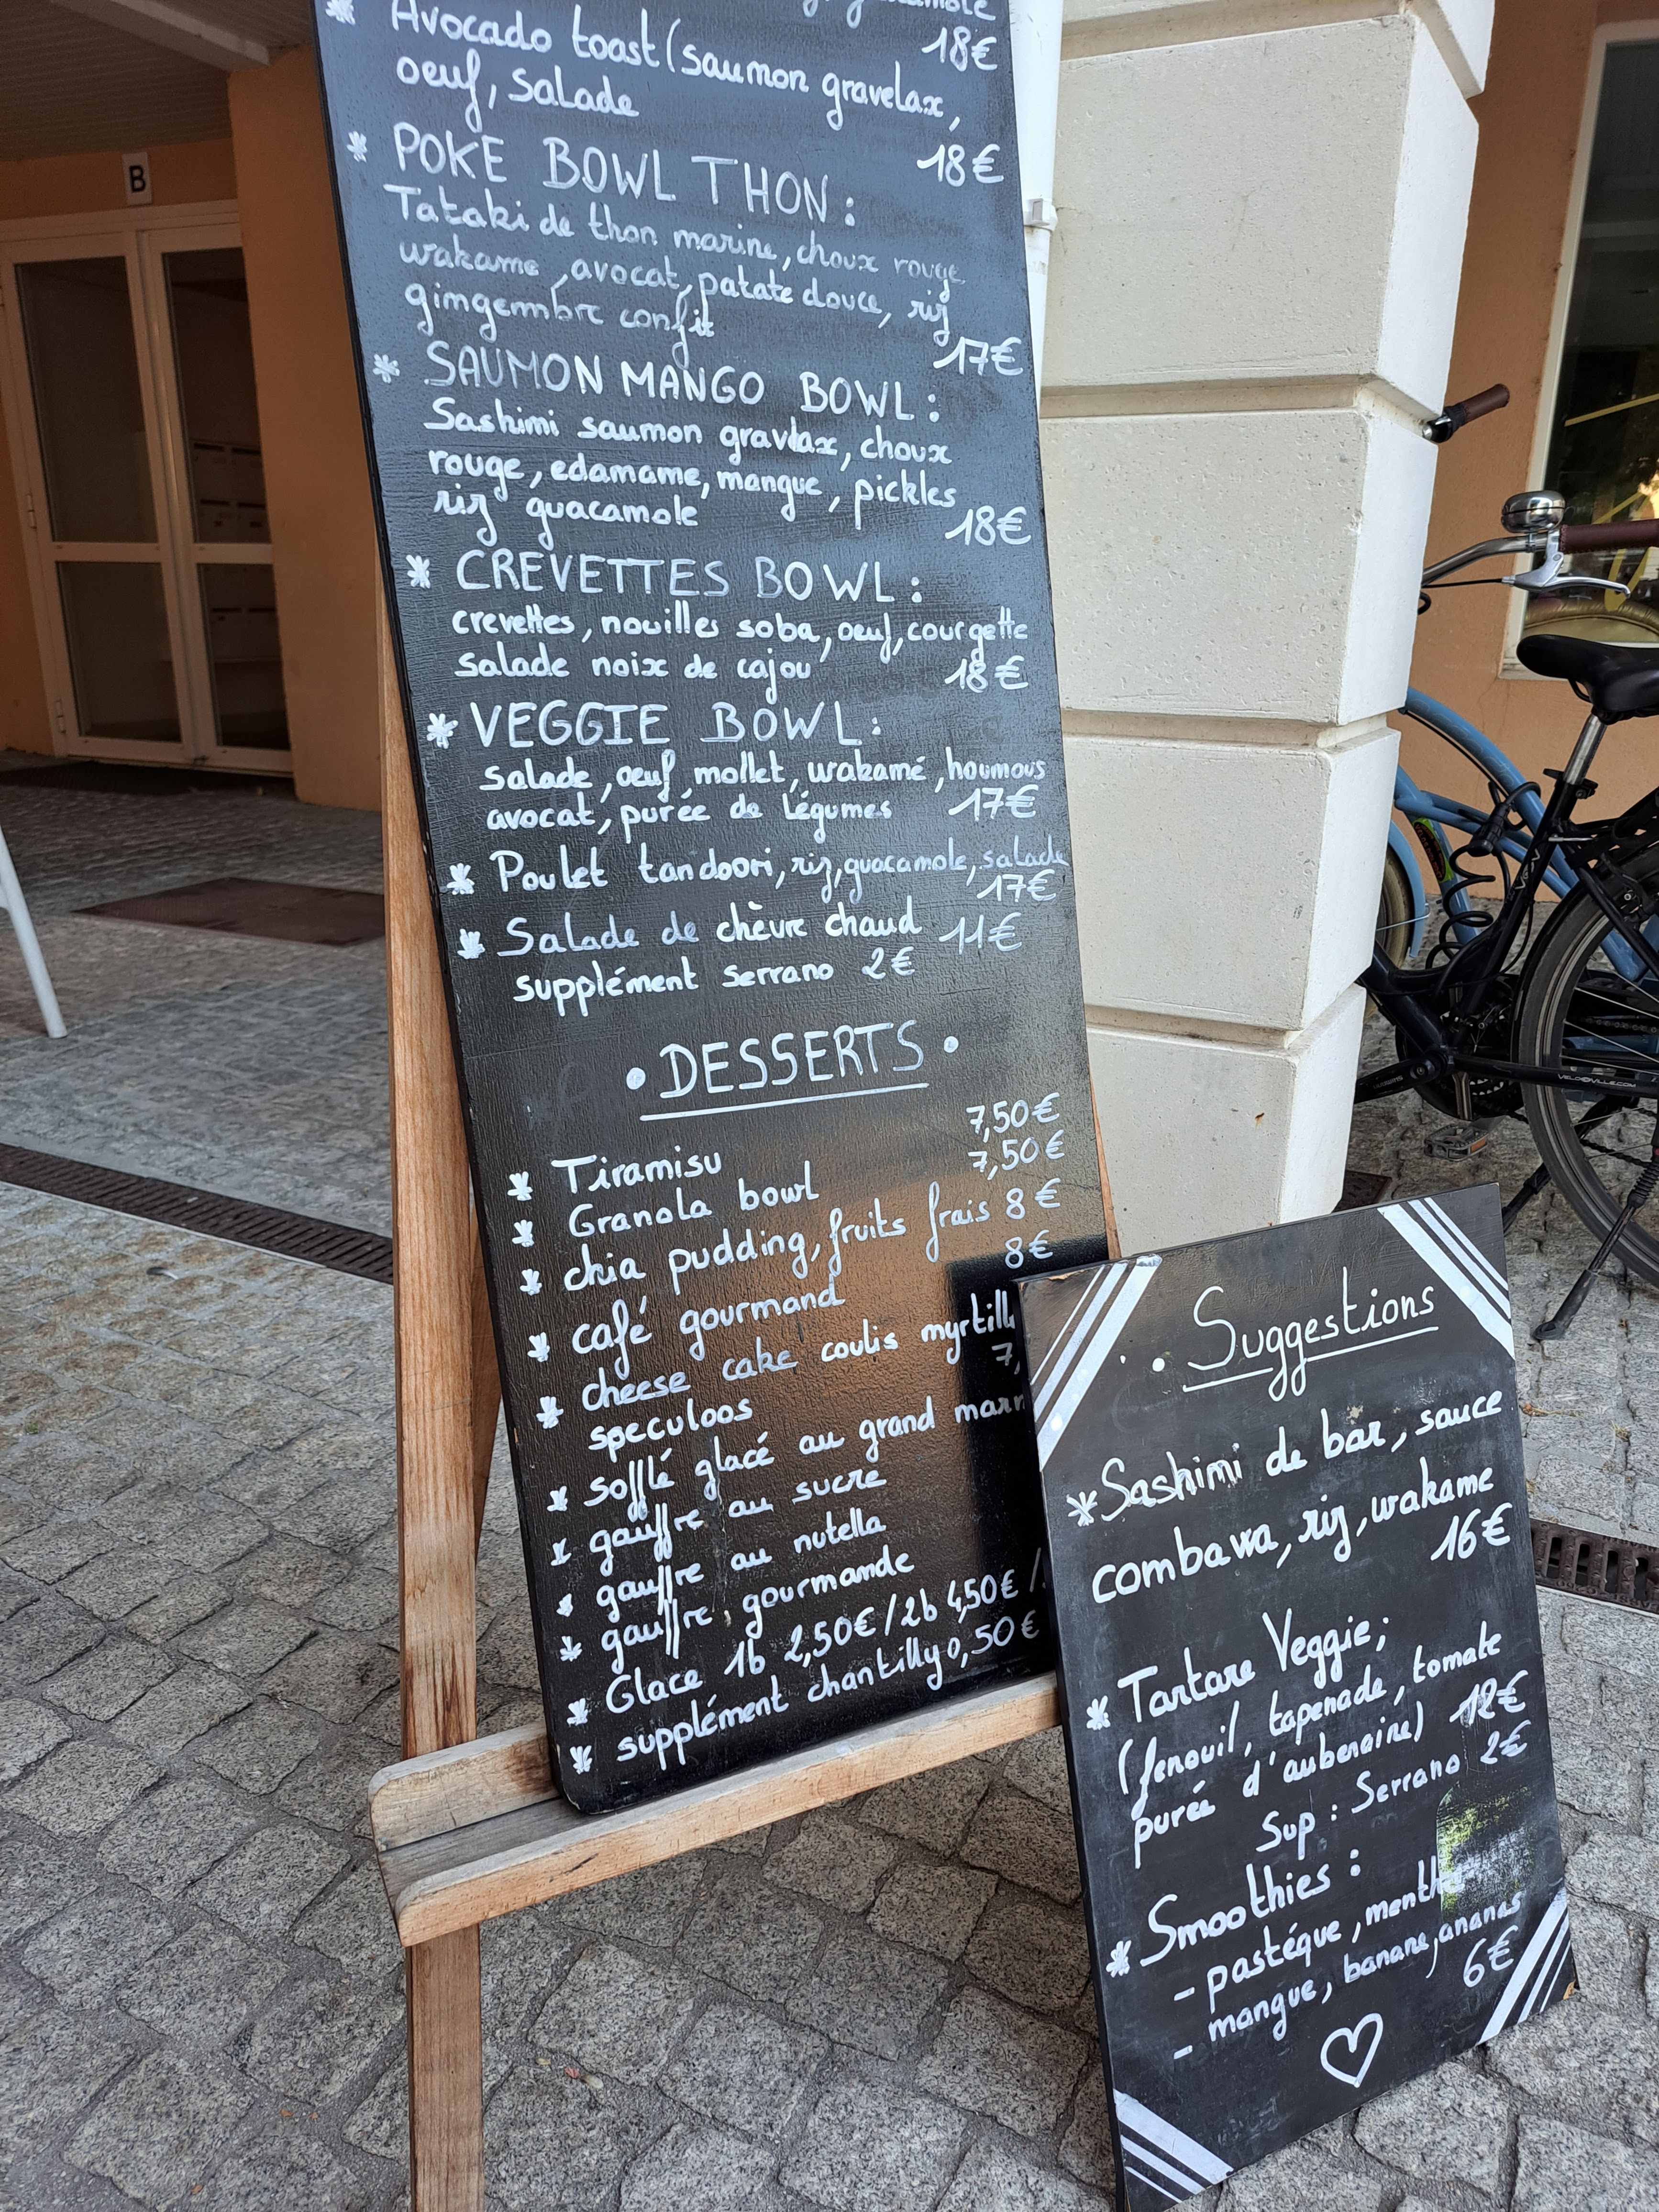 18€
* Avocado toast (saumon gravelax,
oeuf, salade
18€
* POKE BOWL THON :
Tataki de thon marine, choux rouge
wakame, avocat, patate douce, riz
gingembre confit
17€
* SAUMON MANGO BOWL :
Sashimi saumon gravlax, choux
rouge, edamame, mangue, pickles
riz guacamole
18€
* CREVETTES BOWL :
crevettes, nouilles soba, oeuf, courgette
salade noix de cajou 18€
* VEGGIE BOWL :
salade, oeuf mollet, wakamé, houmous
avocat, purée de légumes 17€
* Poulet tandoori, riz, guacamole, salade
17€
* Salade de chèvre chaud 11€
supplément serrano 2€
• DESSERTS •
* Tiramisu 7,50€
* Granola bowl 7,50€
* chia pudding, fruits frais 8€
* café gourmand 8€
* cheese cake coulis myrtill
speculoos 7,
* sofflé glacé au grand marn
* gauffre au sucre
* gauffre au nutella
* gauffre gourmande
* Glace 1b 2,50€ / 2b 4,50€ /
* supplément chantilly 0,50€
Suggestions
* Sashimi de bar, sauce
combawa, riz, wakame
16€
* Tartare Veggie;
(fenouil, tapenade, tomate
purée d'aubenaire) 12€
Sup : Serrano 2€
* Smoothies :
- pastéque, menth
- mangue, banane, ananas
6€
B
VELODEVILLE.COM